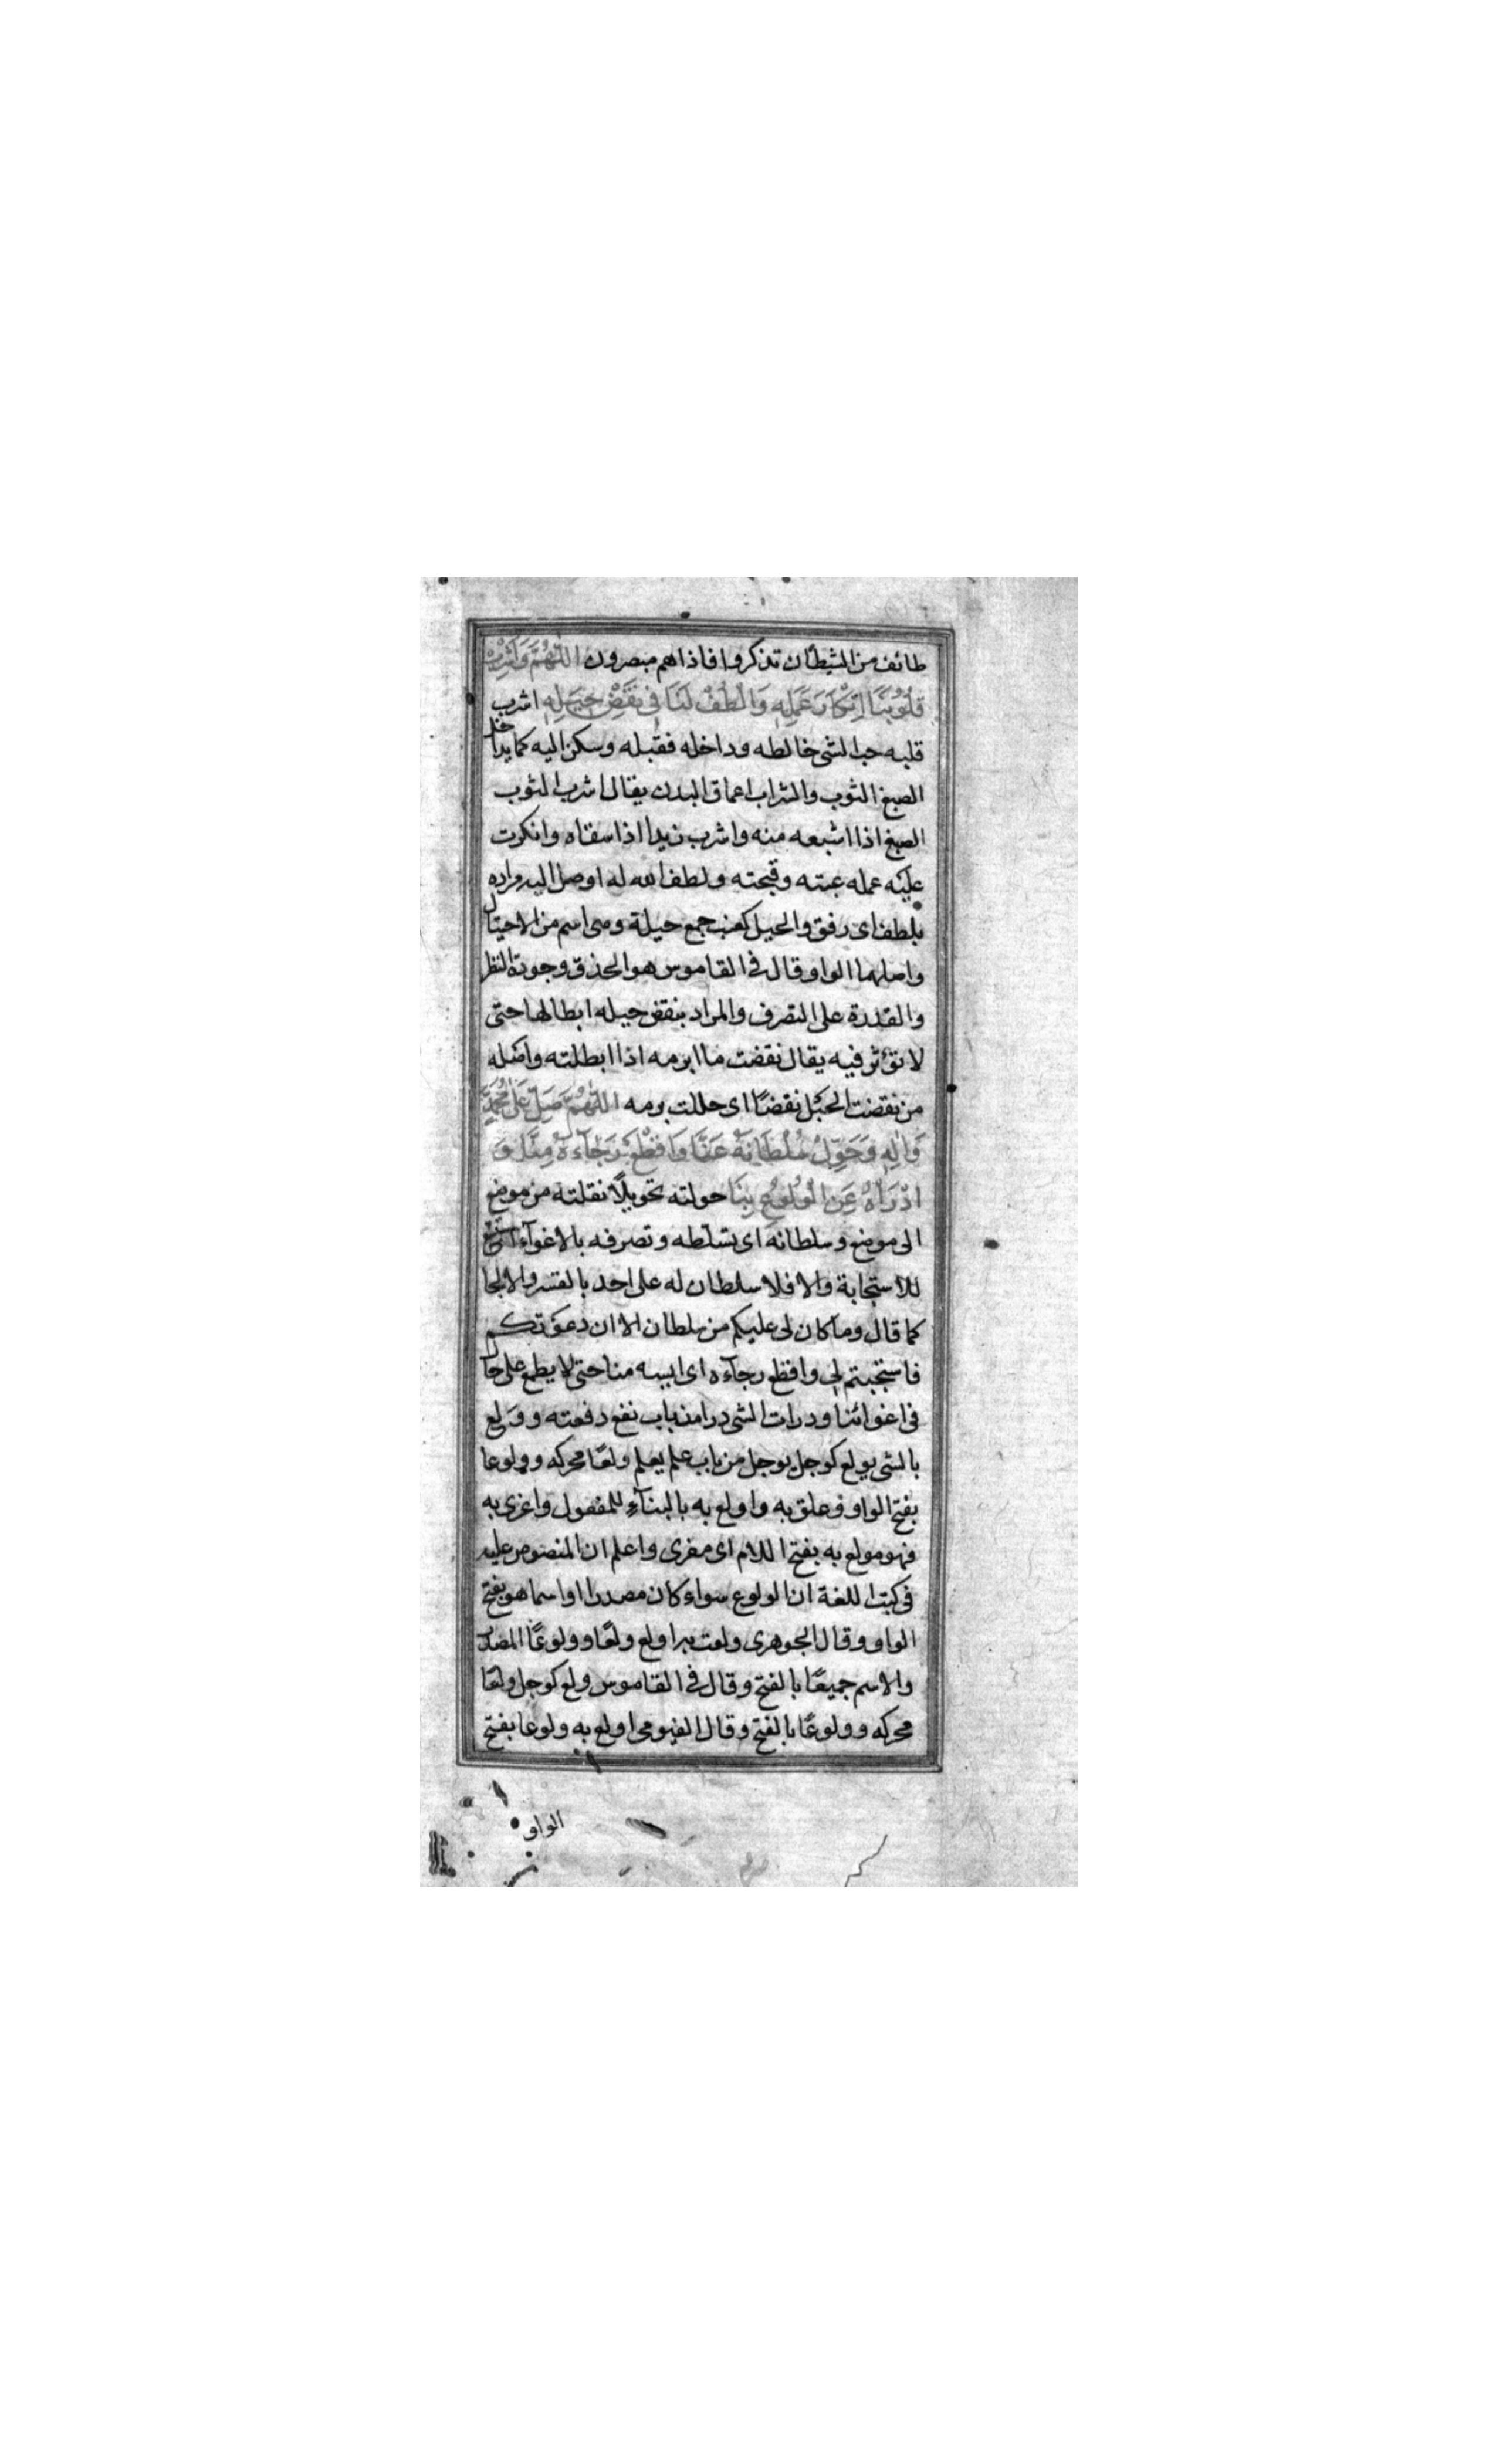 طائف من الشيطان تذكروا فاذاهم مبصرون اللّٰهُمَّ وَاَشْرِبْ
قُلُوبَنَا اِنْكَارَ عَمَلِهِ وَالْطُفْ لَنَا فِي نَقْضِ حِيَلِهِ اشرب
قلبه حب الشى خالطه وداخله فقبله وسكن اليه كما يداخل
الصبغ الثوب والشراب اعماق البدن يقال اشرب الثوب
الصبغ اذا اشبعه منه واشرب زيدا اذا سقاه وانكرت
عليه عمله عبته وقبحته ولطف الله له اوصل اليه مراده
بلطف اى رفق والحيل كعنب جمع حيلة وهى اسم من الاحتيال
واصلها الواو قال فى القاموس هو الحذق وجودة النظر
والقدرة على التصرف والمراد بنقض حيله ابطالها حتى
لا تؤثر فيه يقال نقضت ما ابرمه اذا ابطلته واصله
من نقضت الحبل نقضًا اى حللت برمه اللّٰهُمَّ صَلِّ عَلٰى مُحَمَّدٍ
وَاٰلِهِ وَحَوِّلْ سُلْطَانَهُ عَنَّا وَاقْطَعْ رَجَآءَهُ مِنَّا وَ
ادْرَأْهُ عَنِ الْوُلُوعِ بِنَا حولته تحويلًا نقلته من موضع
الى موضع وسلطانه اى تسلطه وتصرفه بالاغوآء
للاستجابة والا فلا سلطان له على احد بالقسر والالجا
كما قال وما كان لى عليكم من سلطان الا ان دعوتكم
فاستجبتم لى واقطع رجآءه اى ايسه منا حتى لا يطمع على حال
فى اغوائنا ودرات الشى درا من باب نفع دفعته وولع
بالشى يولع كوجل يوجل من باب علم يعلم ولعًا محركه وولوعا
بفتح الواو وعلق به واولع به بالبنآء للمفعول واغرى به
فهو مولع به بفتح اللام اى مغرى واعلم ان المنصوص عليه
فى كتب اللغة ان الولوع سواء كان مصدرا او اسما هو بفتح
الواو وقال الجوهرى ولعت به اولع ولعًا وولوعًا المصدر
والاسم جميعًا بالفتح وقال فى القاموس ولع كوجل ولعًا
محركه وولوعًا بالفتح وقال الفيومى اولع به ولوعا بفتح
الواو